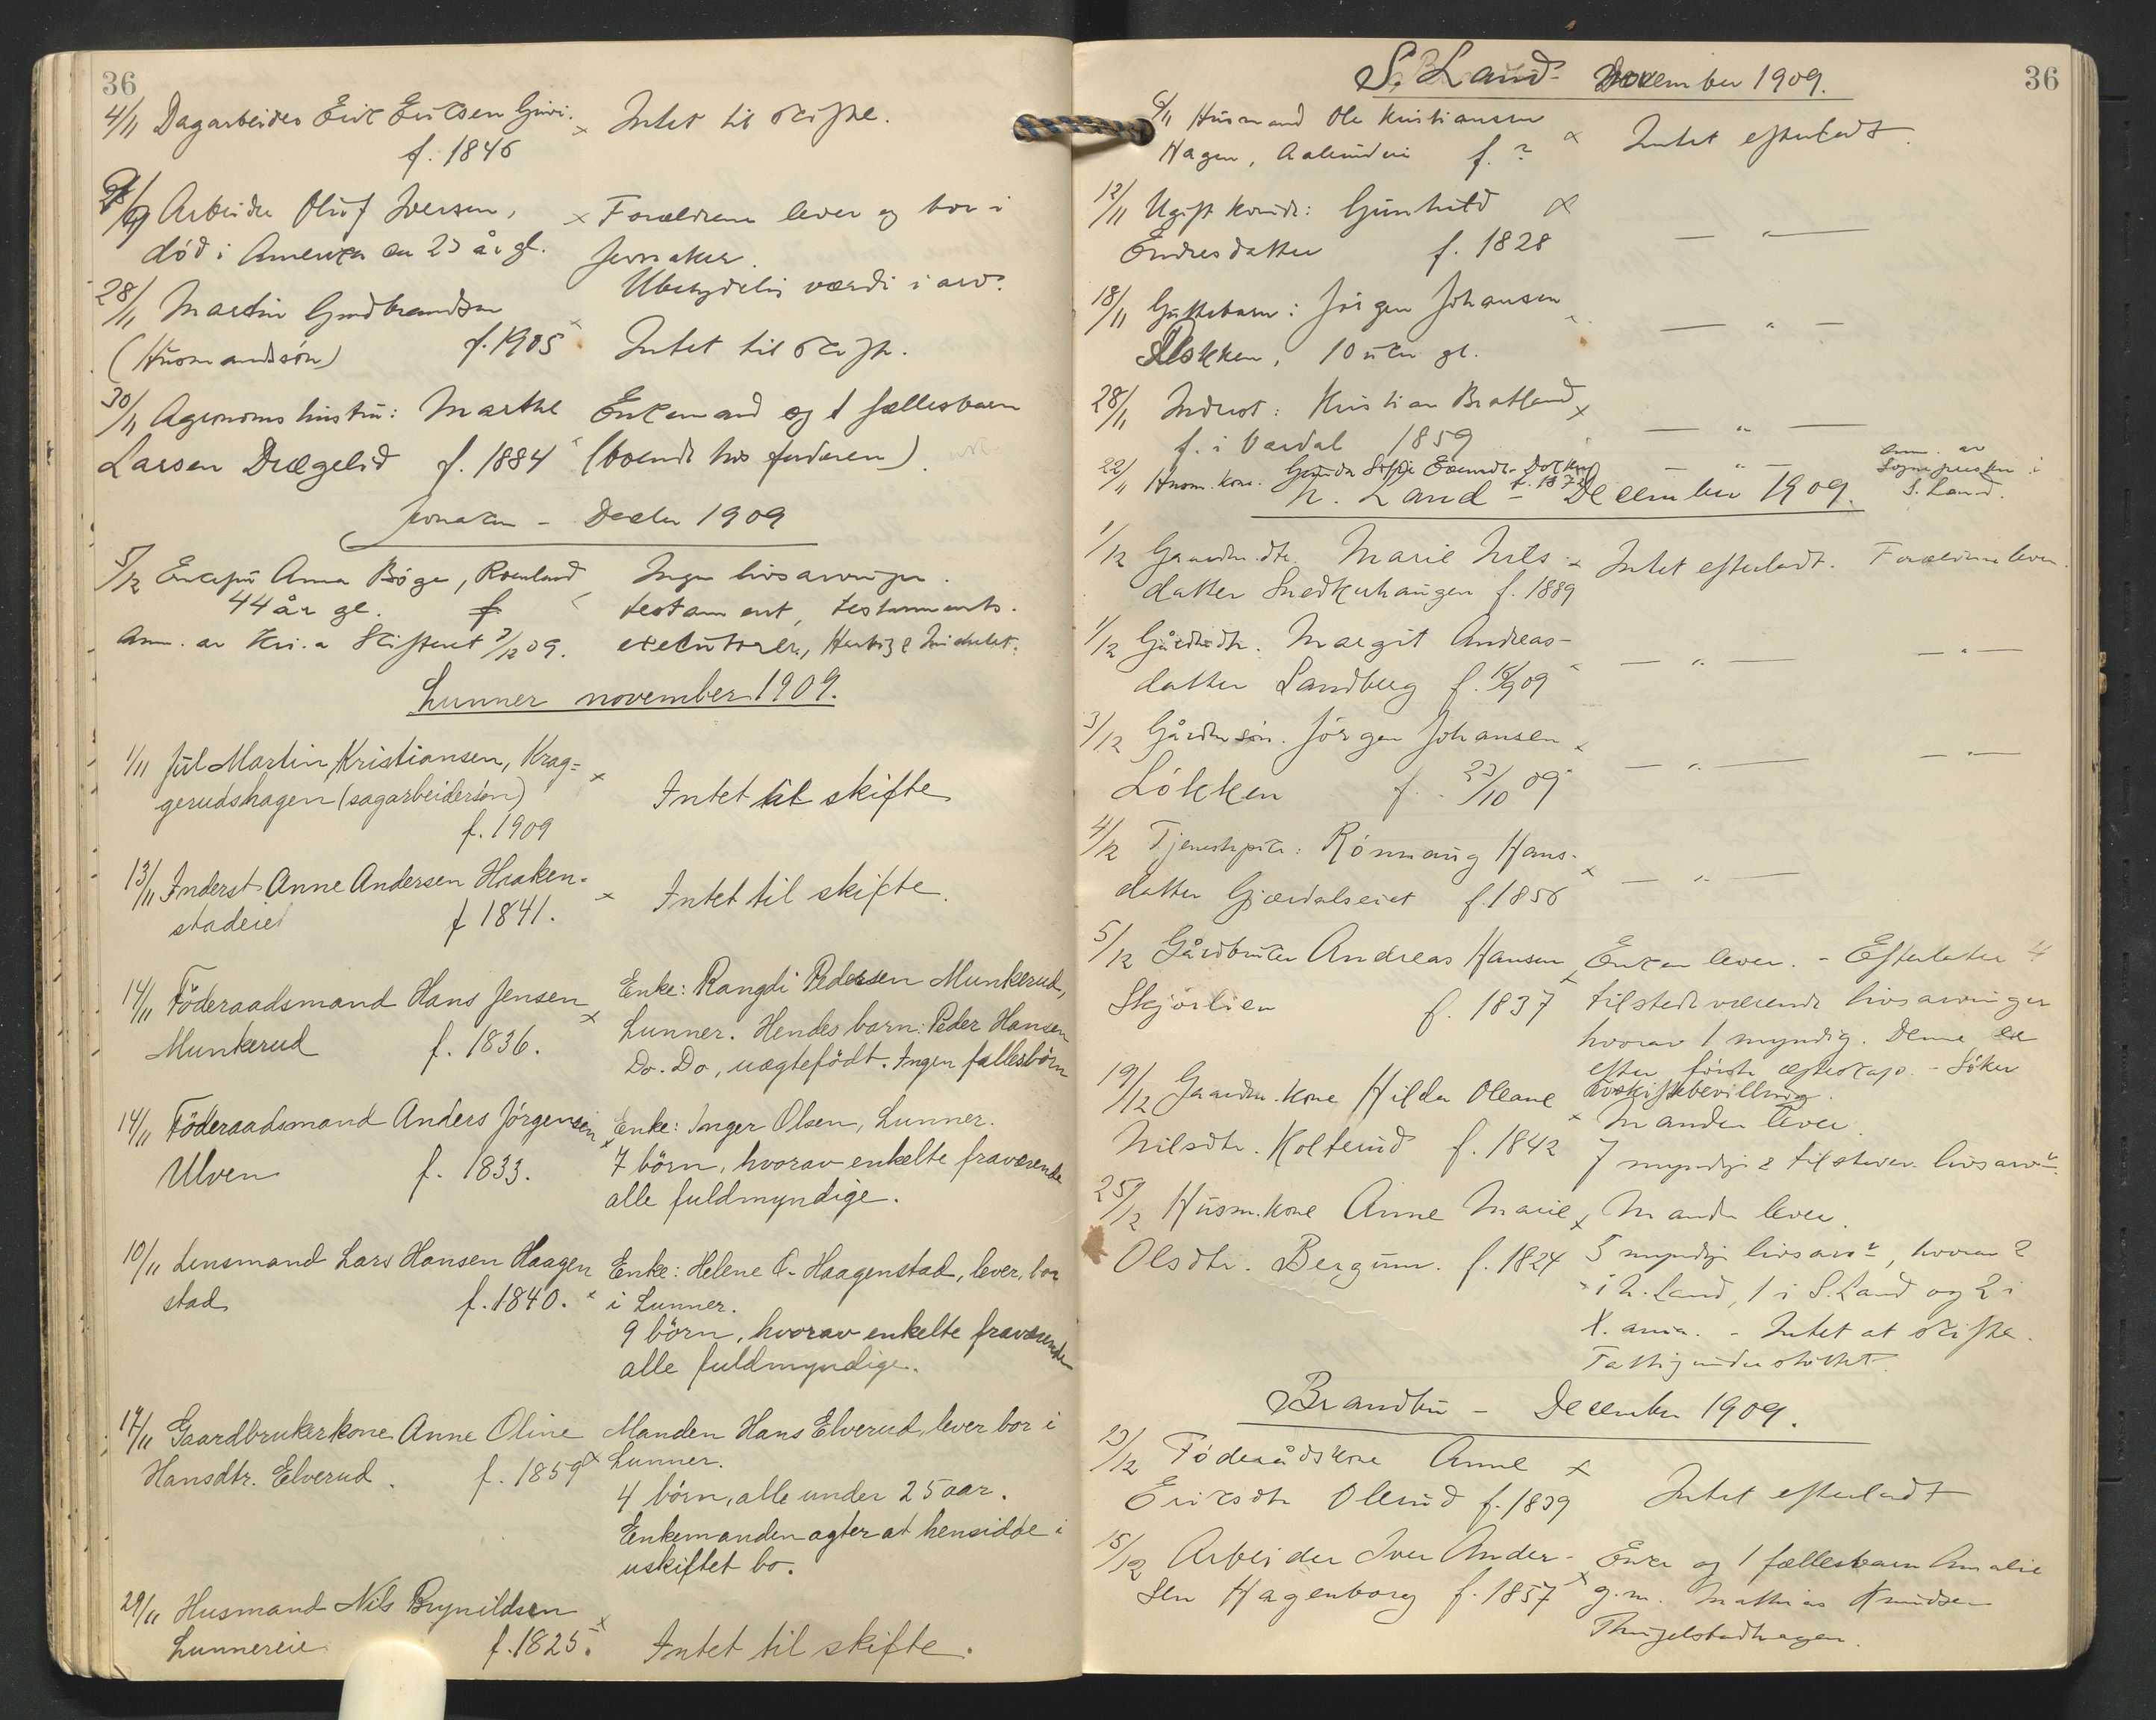 36
4/11 Dagarbeider Erik Eriksen Grini. x Intet til skifte.
f. 1846
Arbeider Oluf Iversen, x Forældrene lever og bor i
död i Amerika ca 23 år gl. Jevnaker.
Ubetydelig værdi i arv.
28/11 Martin Gudbrandsen
(Husmandssön) f. 1905 Intet til skifte.
30/11 Agronoms hustru: Marthe Enkemand og 1 fællesbarn
Larsen Drægelid f. 1884 (boende hos faderen).
Jevnaker - Decbr 1909
5/12 Enkefru Anna Böge, Roenlund Ingen livsarvinger.
44 år gl. testament, testaments-
Anm. av Kri.a Skifteret 7/12 09. executorer,
Lunner november 1909.
1/11 Jul Martin Kristiansen, Krag= x
gerudshagen (sagarbeidersön) Intet til skifte
f. 1909
13/11 Inderst Anne Andersen Haaken- x Intet til skifte.
stadeiet f 1841.
14/11 Föderaadsmand Hans Jensen x Enke: Rangdi Pedersen Munkerud,
Munkerud f. 1836. Lunner. Hendes barn: Peder Hansen
Do. Do, uægtefödt. Ingen fællesbörn
14/11 Föderaadsmand Anders Jörgensen x Enke: Inger Olsen, Lunner.
Ulven f. 1833. 7 börn, hvorav enkelte fraværende
alle fuldmyndige.
10/11 Lensmand Lars Hansen Haagen Enke: Helene O. Haagenstad, lever, bor
stad f. 1840. x i Lunner.
9 börn, hvorav enkelte fraværende
alle fuldmyndige.
17/11 Gaardbrukerkone Anne Oline Manden Hans Elverud, lever bor i
Hansdtr. Elverud. f. 1859 x Lunner.
4 börn, alle under 25 aar.
Enkemanden agter at hensidde i
uskiftet bo.
29/11 Husmand Nils Brynildsen x
Lunnereie f. 1825. Intet til skifte.
36
S. Land - November 1909.
6/11 Husmand Ole Kristiansen
Hagen, f. ? x Intet efterladt.
12/11 Ugift kvinde: Gunhild x
Endresdatter f. 1828 — " —
18/11 Guttebarn: Jörgen Johansen
Lökken, 10 uker gl. — " —
28/11 Inderst: Kristian Bratland x
f. i Vardal 1859 — " —
22/11 Husm. kone. — " — anm. av
Sognepresten i
S. Land.
N. Land - December 1909.
1/12 Gaardbr.dtr. Marie Nils- x Intet efterladt. Forældrene lever.
datter Snedkerhaugen f. 1889
1/12 Gårdbrdtr. Margit Andreas-
datter Landberg f. 09 — " — — " —
3/12 Gårdbrsön. Jörgen Johansen x
Lökken f. 23/10 09 — " — — " —
4/12 Tjenestepike: Rönnaug Hans- x
datter Gjærdalseiet f. 1856 — " —
5/12 Gårdbruker Andreas Hansen Enken lever. - Efterlater 4
Skjörlien f. 1837 x tilstedeværende livsarvinger
hvorav 1 myndig. Denne er
efter förste ægteskap. - Söker
uskiftebevilling.
19/12 Gaardbr. kone Hilda Oleane x Manden lever.
Nilsdtr. Kolterud f. 1842 7 myndige & tilstedev. livsarv.
25/12 Husm. kone Anne Marie x Manden lever.
Olsdtr. Bergum. f. 1824 5 myndige livsarv., hvorav 2
i N. Land, 1 i S. Land og 2 i
X.ania. - Intet at skifte.
Fattigunderstöttet.
Brandbu - December 1909.
23/12 Föderådskone Anne x
Eriksdtr Olerud f. 1839 Intet efterladt
15/12 Arbeider Iver Ander- Enke og 1 fællesbarn Amalie
sen Hagenborg f. 1857 x g.m. Mathias Knudsen
Thingelstadhagen.